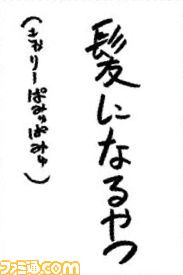 髪になるやつ
（きゃりーぱみゅぱみゅ）
ファミ通.com